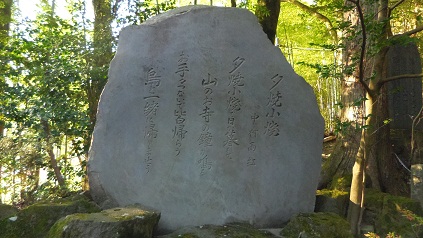 夕焼小焼
中村雨紅
夕焼小焼で日が暮れて
山のお寺の鐘が鳴る
お手々つないで皆帰ろ
烏と一緒に帰りましょ